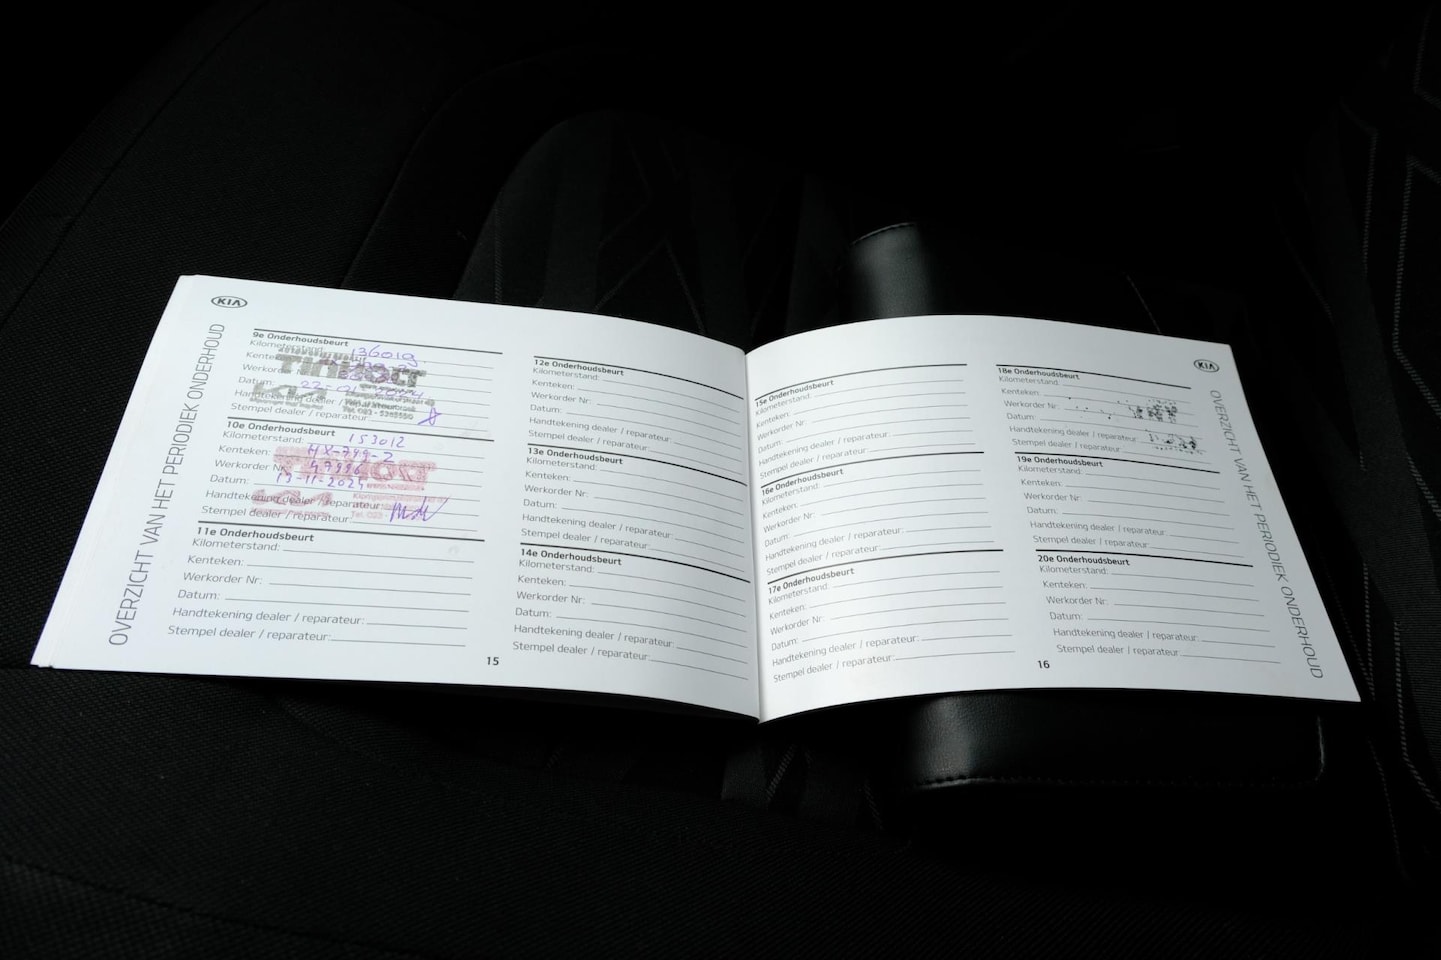 KIA
OVERZICHT VAN HET PERIODIEK ONDERHOUD
9e Onderhoudsbeurt
Kilometerstand: 136019
Datum:
Handtekening dealer / reparateur:
Stempel dealer / reparateur:
10e Onderhoudsbeurt
Kilometerstand: 153012
Kenteken: HX-799-Z
Werkorder Nr: 47996
Datum: 13-11-2024
Handtekening dealer / reparateur:
Stempel dealer / reparateur:
11e Onderhoudsbeurt
Kilometerstand:
Kenteken:
Werkorder Nr:
Datum:
Handtekening dealer / reparateur:
Stempel dealer / reparateur:
12e Onderhoudsbeurt
Kilometerstand:
Kenteken:
Werkorder Nr:
Datum:
Handtekening dealer / reparateur:
Stempel dealer / reparateur:
13e Onderhoudsbeurt
Kilometerstand:
Kenteken:
Werkorder Nr:
Datum:
Handtekening dealer / reparateur:
Stempel dealer / reparateur:
14e Onderhoudsbeurt
Kilometerstand:
Kenteken:
Werkorder Nr:
Datum:
Handtekening dealer / reparateur:
Stempel dealer / reparateur:
15
15e Onderhoudsbeurt
Kilometerstand:
Kenteken:
Werkorder Nr:
Datum:
Handtekening dealer / reparateur:
Stempel dealer / reparateur:
16e Onderhoudsbeurt
Kilometerstand:
Kenteken:
Werkorder Nr:
Datum:
Handtekening dealer / reparateur:
Stempel dealer / reparateur:
17e Onderhoudsbeurt
Kilometerstand:
Kenteken:
Werkorder Nr:
Datum:
Handtekening dealer / reparateur:
Stempel dealer / reparateur:
18e Onderhoudsbeurt
Kilometerstand:
Kenteken:
Werkorder Nr:
Datum:
Handtekening dealer / reparateur:
Stempel dealer / reparateur:
19e Onderhoudsbeurt
Kilometerstand:
Kenteken:
Werkorder Nr:
Datum:
Handtekening dealer / reparateur:
Stempel dealer / reparateur:
20e Onderhoudsbeurt
Kilometerstand:
Kenteken:
Werkorder Nr:
Datum:
Handtekening dealer / reparateur:
Stempel dealer / reparateur:
16
KIA
OVERZICHT VAN HET PERIODIEK ONDERHOUD